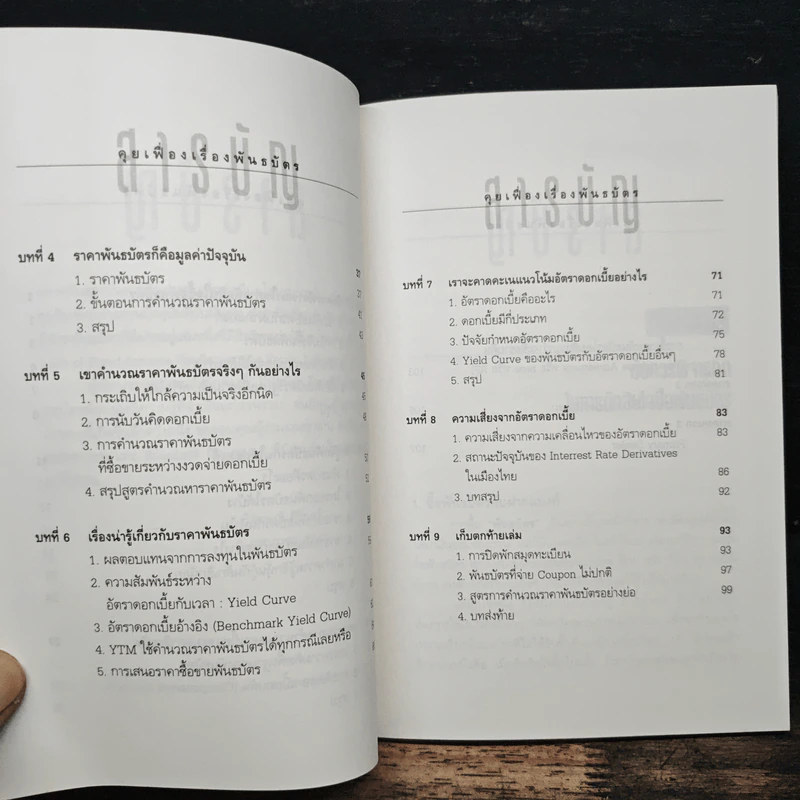 สารบัญ
คุยเฟื่องเรื่องพันธบัตร
บทที่ 4 ราคาพันธบัตรก็คือมูลค่าปัจจุบัน
1. ราคาพันธบัตร
2. ขั้นตอนการคำนวณราคาพันธบัตร
3. สรุป
บทที่ 5 เขาคำนวณราคาพันธบัตรจริงๆ กันอย่างไร
1. กระเถิบให้ใกล้ความเป็นจริงอีกนิด
2. การนับวันคิดดอกเบี้ย
3. การคำนวณราคาพันธบัตร
ที่ซื้อขายระหว่างงวดจ่ายดอกเบี้ย
4. สรุปสูตรคำนวณหาราคาพันธบัตร
บทที่ 6 เรื่องน่ารู้เกี่ยวกับราคาพันธบัตร
1. ผลตอบแทนจากการลงทุนในพันธบัตร
2. ความสัมพันธ์ระหว่าง
อัตราดอกเบี้ยกับเวลา : Yield Curve
3. อัตราดอกเบี้ยอ้างอิง (Benchmark Yield Curve)
4. YTM ใช้คำนวณราคาพันธบัตรได้ทุกกรณีเลยหรือ
5. การเสนอราคาซื้อขายพันธบัตร
สารบัญ
คุยเฟื่องเรื่องพันธบัตร
บทที่ 7 เราจะคาดคะเนแนวโน้มอัตราดอกเบี้ยอย่างไร 71
1. อัตราดอกเบี้ยคืออะไร 71
2. ดอกเบี้ยมีกี่ประเภท 72
3. ปัจจัยกำหนดอัตราดอกเบี้ย 75
4. Yield Curve ของพันธบัตรกับอัตราดอกเบี้ยอื่นๆ 78
5. สรุป 81
บทที่ 8 ความเสี่ยงจากอัตราดอกเบี้ย 83
1. ความเสี่ยงจากความเคลื่อนไหวของอัตราดอกเบี้ย 83
2. สถานะปัจจุบันของ Interrest Rate Derivatives
ในเมืองไทย 86
3. บทสรุป 92
บทที่ 9 เก็บตกท้ายเล่ม 93
1. การปิดพักสมุดทะเบียน 93
2. พันธบัตรที่จ่าย Coupon ไม่ปกติ 97
3. สูตรการคำนวณราคาพันธบัตรอย่างย่อ 99
4. บทส่งท้าย